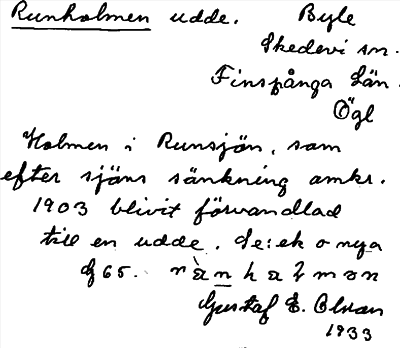 Runholmen udde. Byle
Skedevi sn.
Finspånga Län.
Ögl
Holmen i Runsjön, som
efter sjöns sänkning omkr.
1903 blivit förvandlad
till en udde. Se: ek o nya
G 65.
Gustaf E. Olvan
1933